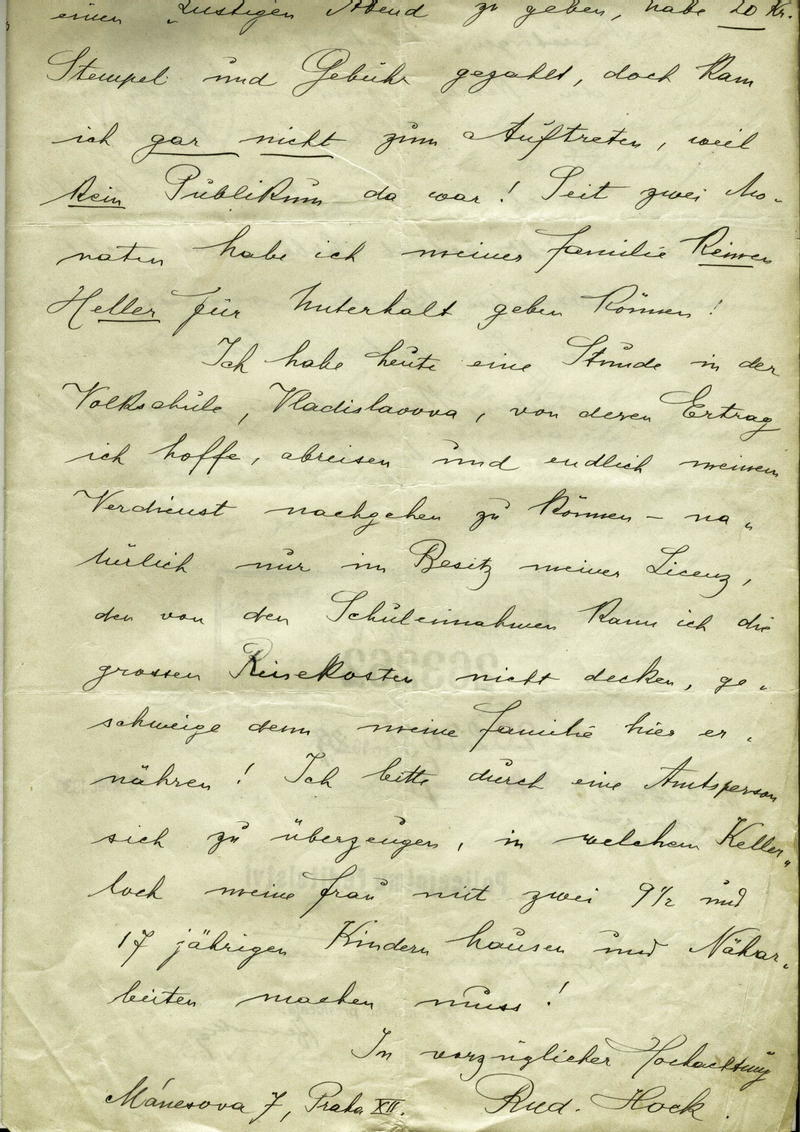 einen „Lustigen Abend zu geben, habe 20 Kr.
Stempel und Gebühr gezahlt, doch kam
ich gar nicht zum Auftreten, weil
kein Publikum da war! Seit zwei Mo-
naten habe ich meiner Familie keinen
Heller für Unterhalt geben können!
Ich habe heute eine Stunde in der
Volkschule, Vladislavova, von deren Ertrag
ich hoffe, abreisen und endlich meinem
Verdienst nachgehen zu können – na-
türlich nur im Besitz meiner Licenz,
den von den Schuleinnahmen kann ich die
grossen Reisekosten nicht decken, ge-
schweige denn meine Familie hier er-
nähren! Ich bitte durch eine Amtsperson
sich zu überzeugen, in welchem Keller-
loch meine Frau mit zwei 9½ und
17 jährigen Kindern hausen und Nähar-
beiten machen muss!
In vorzüglicher Hochachtung
Mánesova 7, Praha XII. Rud. Hock.